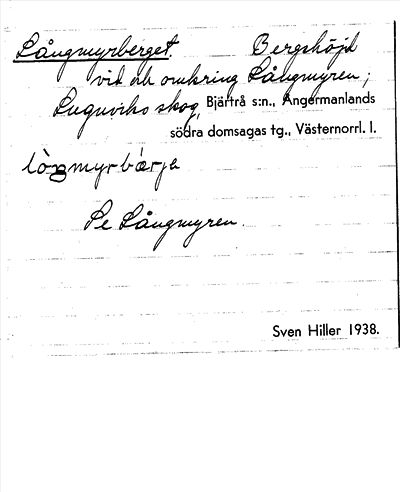 Långmyrberget. Bergshöjd
vid och omkring Långmyren;
Lugnviks skog, Bjärtrå s:n., Ångermanlands
södra domsagas tg., Västernorrl. l.
lòŋmyrbærje
Se Långmyren.
Sven Hiller 1938.